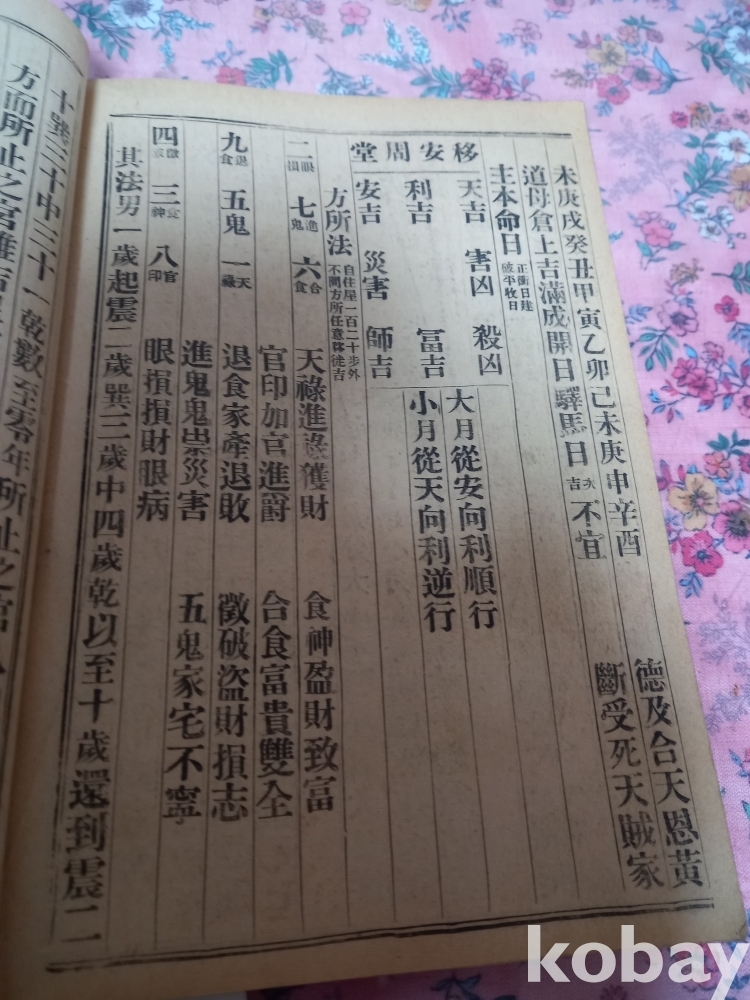 未庚戌癸丑甲寅乙卯己未庚申辛酉 德及合天恩黃
道母倉上吉滿成開日驛馬日 次吉 不宜 斷受死天賊家
主本命日 正衝日建破平收日
移安周堂
天吉 害凶 殺凶 大月從安向利順行
利吉 富吉 小月從天向利逆行
安吉 災害 師吉
方所法 自住屋一百二十步外不問方所任意移徙吉
二眼損 七進鬼 六合食 天祿進祿獲財 食神盈財致富
官印加官進爵 合食富貴雙全
九退食 五鬼 一天祿 退食家產退敗 徵破盜財損志
進鬼鬼祟災害 五鬼家宅不寧
四徵破 三食神 八官印 眼損損財眼病
其法男一歲起震二歲巽三歲中四歲乾以至十歲還到震二
十巽三十中三十一乾數至零年所止之宮
方而所止之宮雖吉
kobay